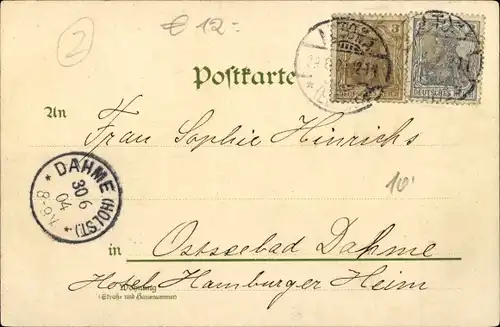 2
€ 12.-
3
DEUTSCHES
Postkarte
An
Frau Sophie Hinrichs
* DAHME (HOLST) *
30 6
04
8-9V.
10.-
in Ostseebad Dahme
Hotel Hamburger Heim
Wohnung
(Straße und Hausnummer)